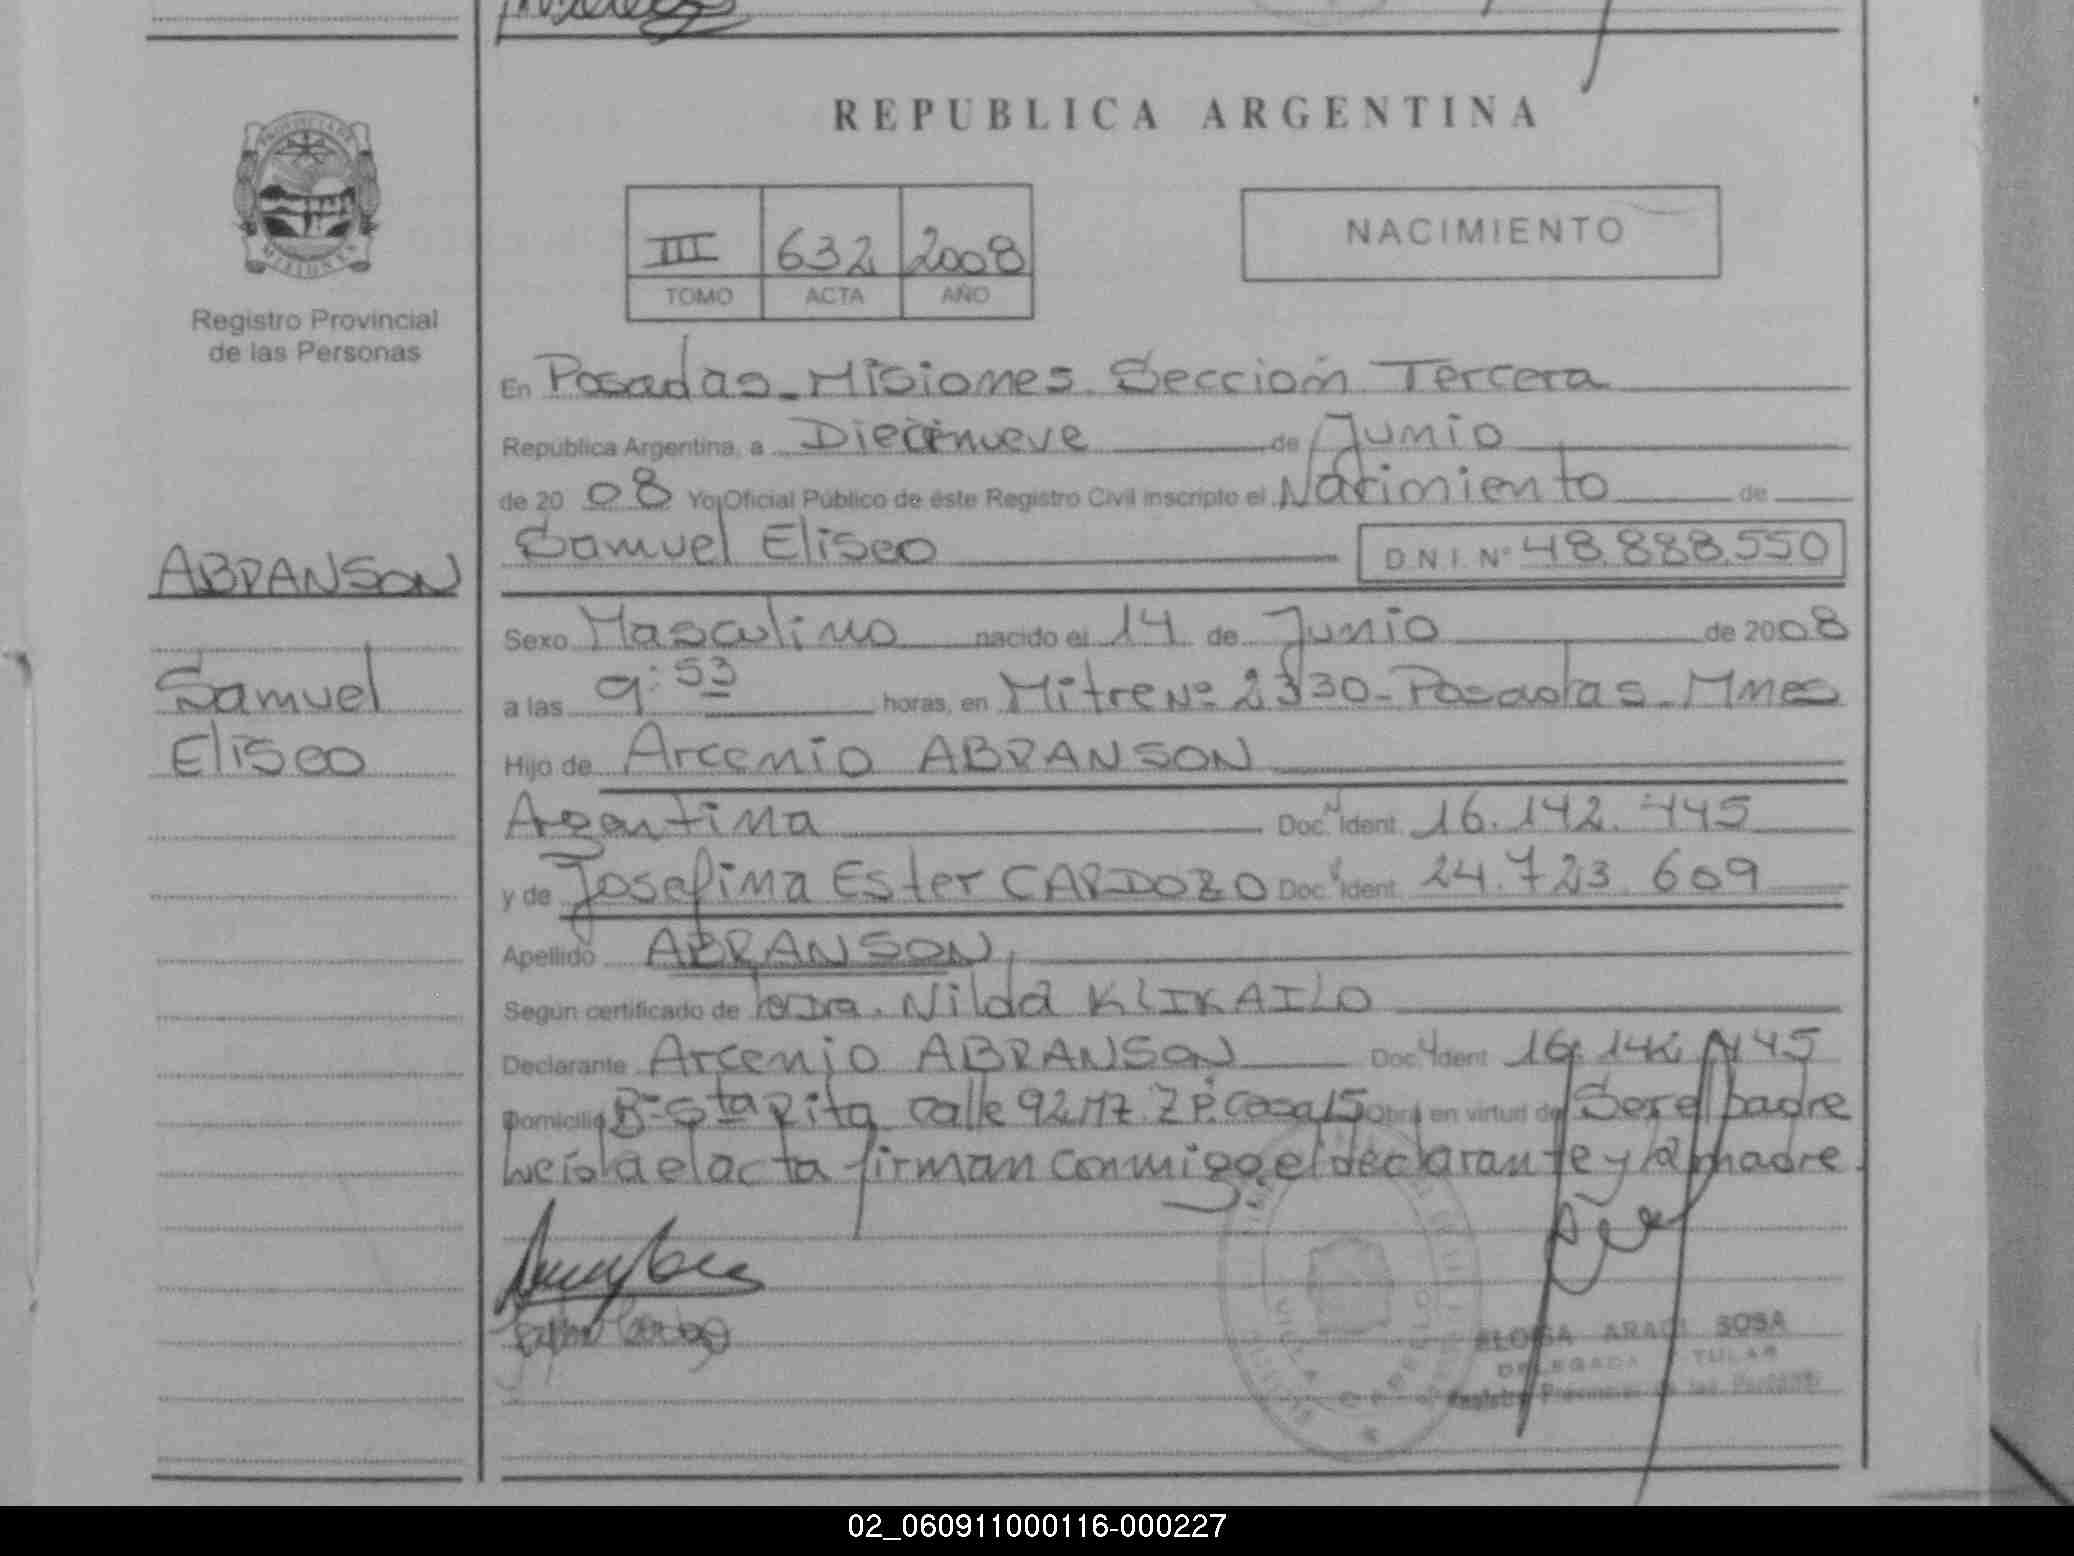 REPUBLICA ARGENTINA
PROVINCIA DE
MISIONES
Registro Provincial
de las Personas
III 632 2008
TOMO ACTA AÑO
NACIMIENTO
En Posadas - Misiones. Sección Tercera
República Argentina, a Diecinueve de Junio
de 20 08 Yo, Oficial Público de éste Registro Civil inscripto el Nacimiento de
Samuel Eliseo D N I. Nº 48.888.550
ABRANSON
Samuel
Eliseo
Sexo Masculino nacido el 14 de Junio de 2008
a las 9:53 horas, en Mitre Nº 2330 - Posadas - Mnes
Hijo de Arcenio ABRANSON
Argentina Doc. Ident. 16.142.445
y de Josefina Ester CARDOZO Doc. Ident. 24.723.609
Apellido ABRANSON
Según certificado de Nilda KLIKAILO
Declarante Arcenio ABRANSON Doc. Ident 16.142.445
Domicilio Bº Sta Rita calle 92 MZ. Z P. Casa 15 Obra en virtud de Ser el padre
Leída el acta firman conmigo el declarante y la madre.
ELOISA ARADI SOSA
DELEGADA TITULAR
Registro Provincial de las Personas
02_060911000116-000227